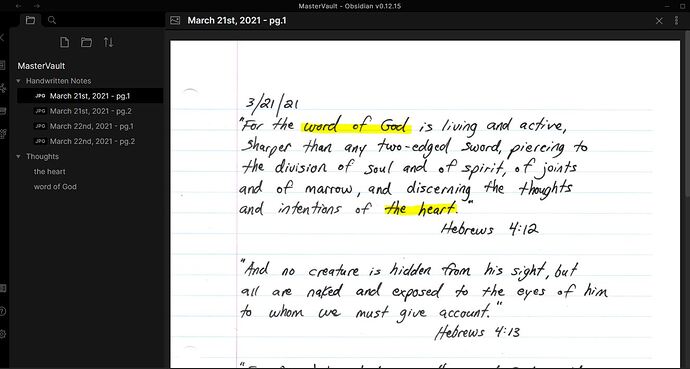 MasterVault - Obsidian v0.12.15
March 21st, 2021 - pg.1
MasterVault
Handwritten Notes
JPG March 21st, 2021 - pg.1
JPG March 21st, 2021 - pg.2
JPG March 22nd, 2021 - pg.1
JPG March 22nd, 2021 - pg.2
Thoughts
the heart
word of God
3/21/21
"For the word of God is living and active,
sharper than any two-edged sword, piercing to
the division of soul and of spirit, of joints
and of marrow, and discerning the thoughts
and intentions of the heart."
Hebrews 4:12
"And no creature is hidden from his sight, but
all are naked and exposed to the eyes of him
to whom we must give account."
Hebrews 4:13